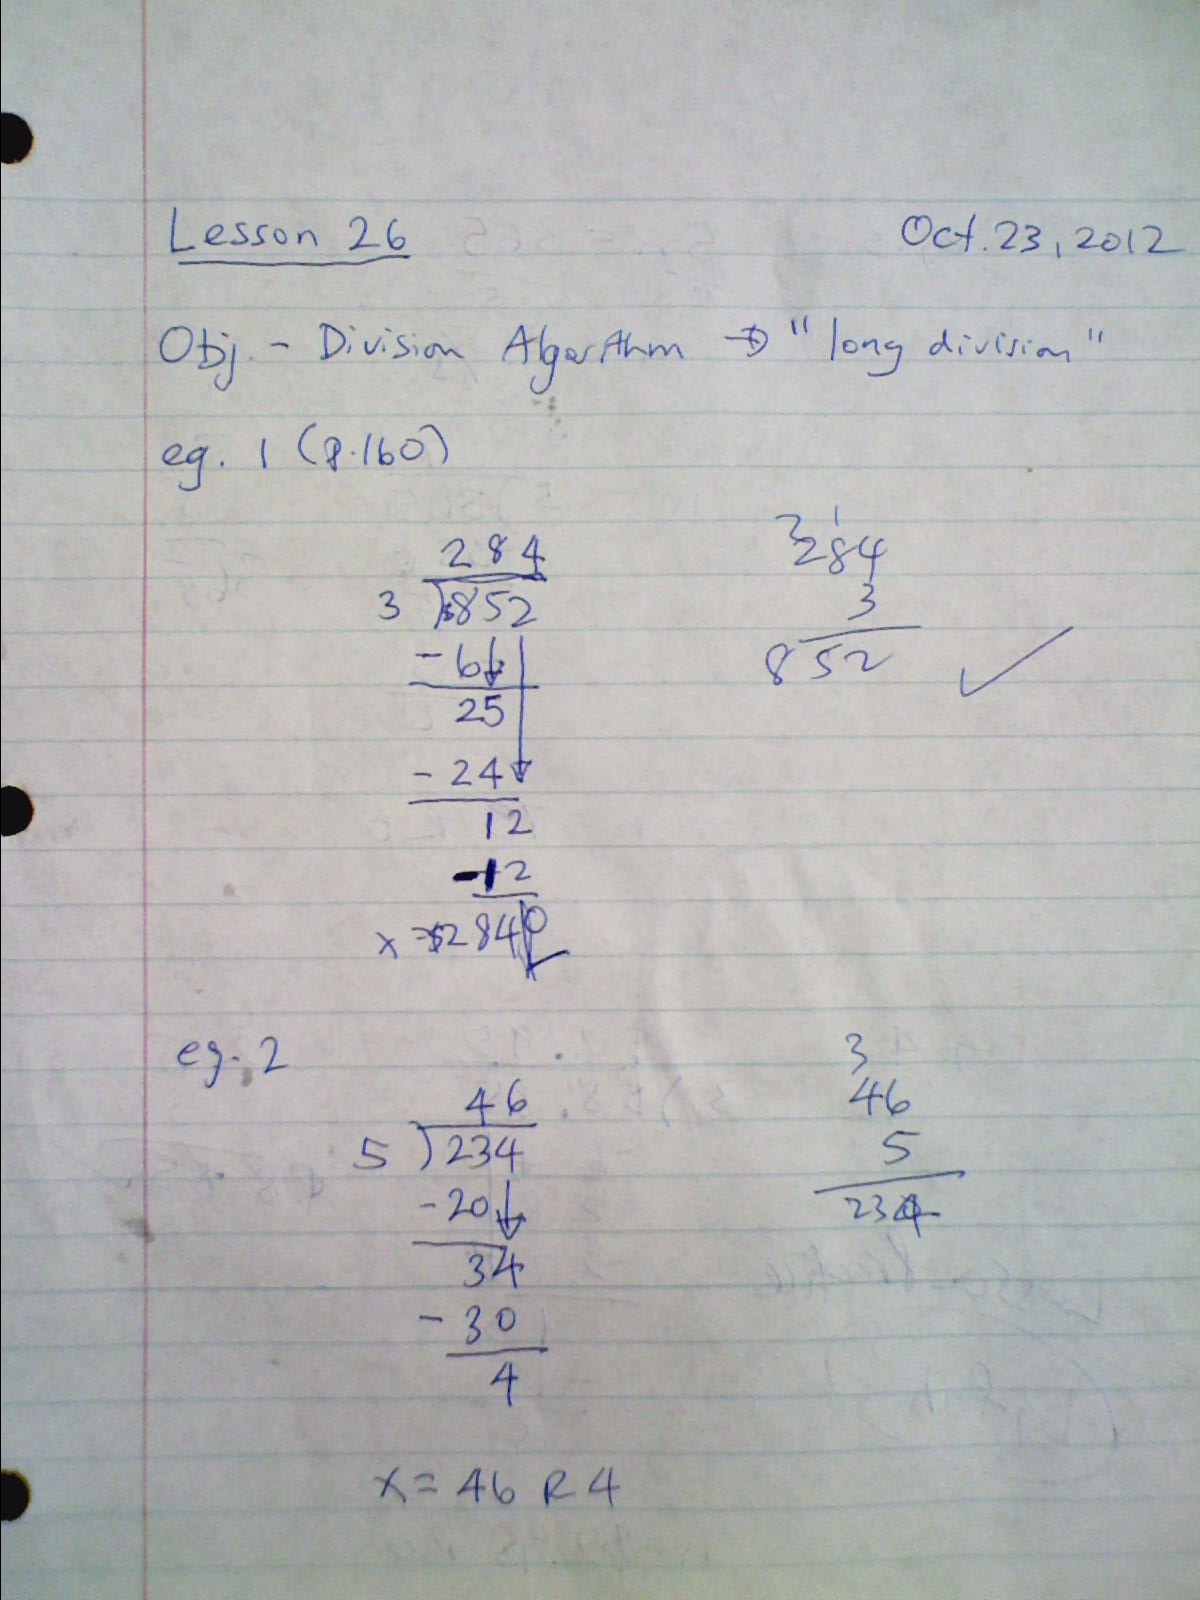 Lesson 26 Oct. 23, 2012
Obj - Division Algorithm → "long division"
eg. 1 (p.160)
284
3 )$852
- 6
25
- 24
12
-12
0
x = $284
2 1
284
3
852 ✓
eg. 2
46
5 )234
- 20
34
- 30
4
x = 46 R 4
3
46
5